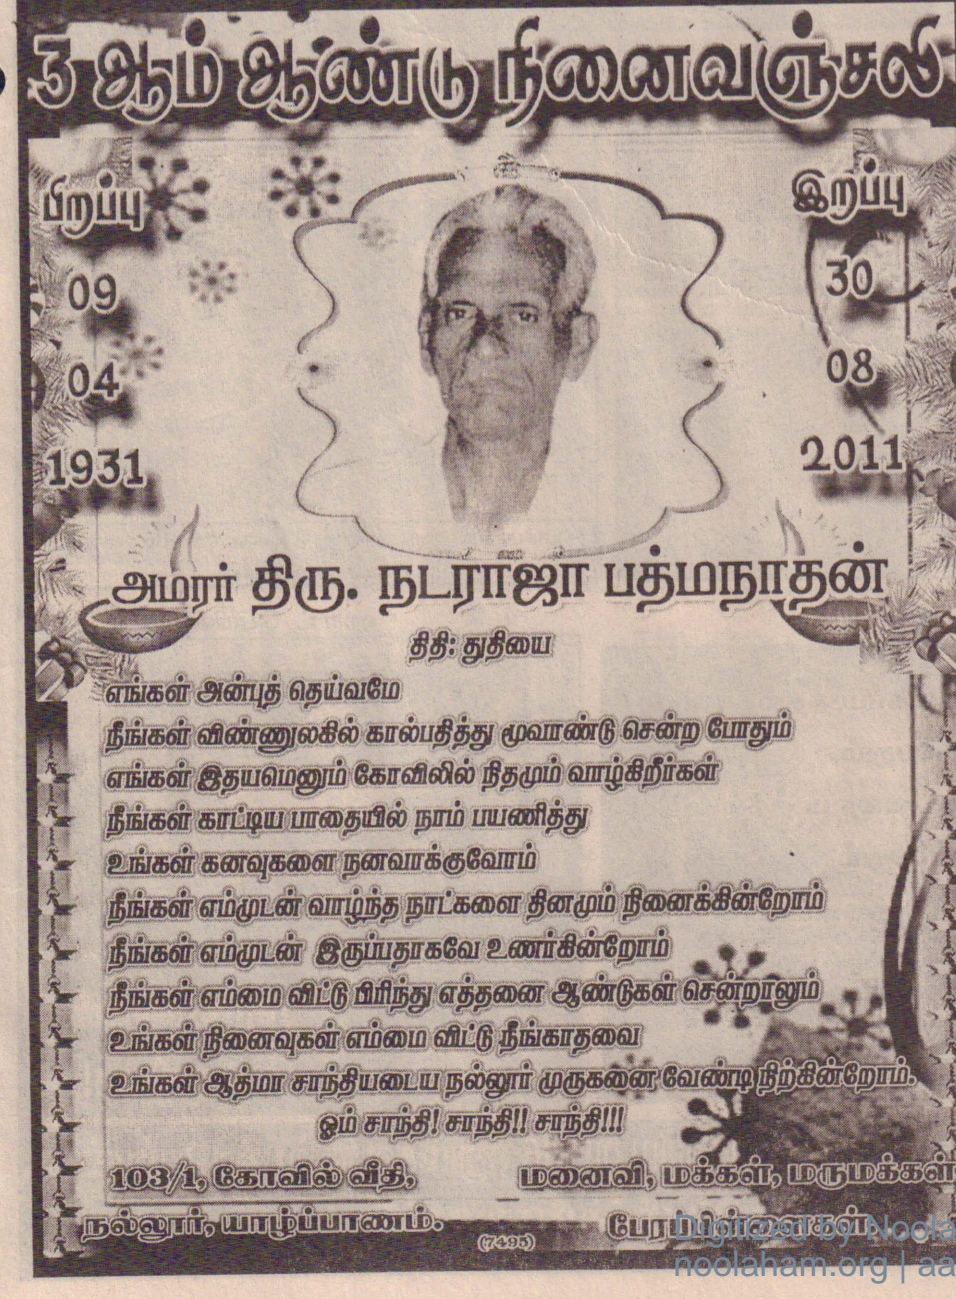 3 ஆம் ஆண்டு நினைவஞ்சலி
பிறப்பு
09
04
1931
இறப்பு
30
08
2011
அமரர் திரு. நடராஜா பத்மநாதன்
திதி: துதியை
எங்கள் அன்புத் தெய்வமே
நீங்கள் விண்ணுலகில் கால்பதித்து மூவாண்டு சென்ற போதும்
எங்கள் இதயமெனும் கோவிலில் நிதமும் வாழ்கிறீர்கள்
நீங்கள் காட்டிய பாதையில் நாம் பயணித்து
உங்கள் கனவுகளை நனவாக்குவோம்
நீங்கள் எம்முடன் வாழ்ந்த நாட்களை தினமும் நினைக்கின்றோம்
நீங்கள் எம்முடன் இருப்பதாகவே உணர்கின்றோம்
நீங்கள் எம்மை விட்டு பிரிந்து எத்தனை ஆண்டுகள் சென்றாலும்
உங்கள் நினைவுகள் எம்மை விட்டு நீங்காதவை
உங்கள் ஆத்மா சாந்தியடைய நல்லூர் முருகனை வேண்டி நிற்கின்றோம்.
ஓம் சாந்தி! சாந்தி!! சாந்தி!!!
103/1, கோவில் வீதி,
நல்லூர், யாழ்ப்பாணம்.
மனைவி, மக்கள், மருமக்கள்
பேரப்பிள்ளைகள்
(7495)
Digitized by Noola
noolaham.org | aa